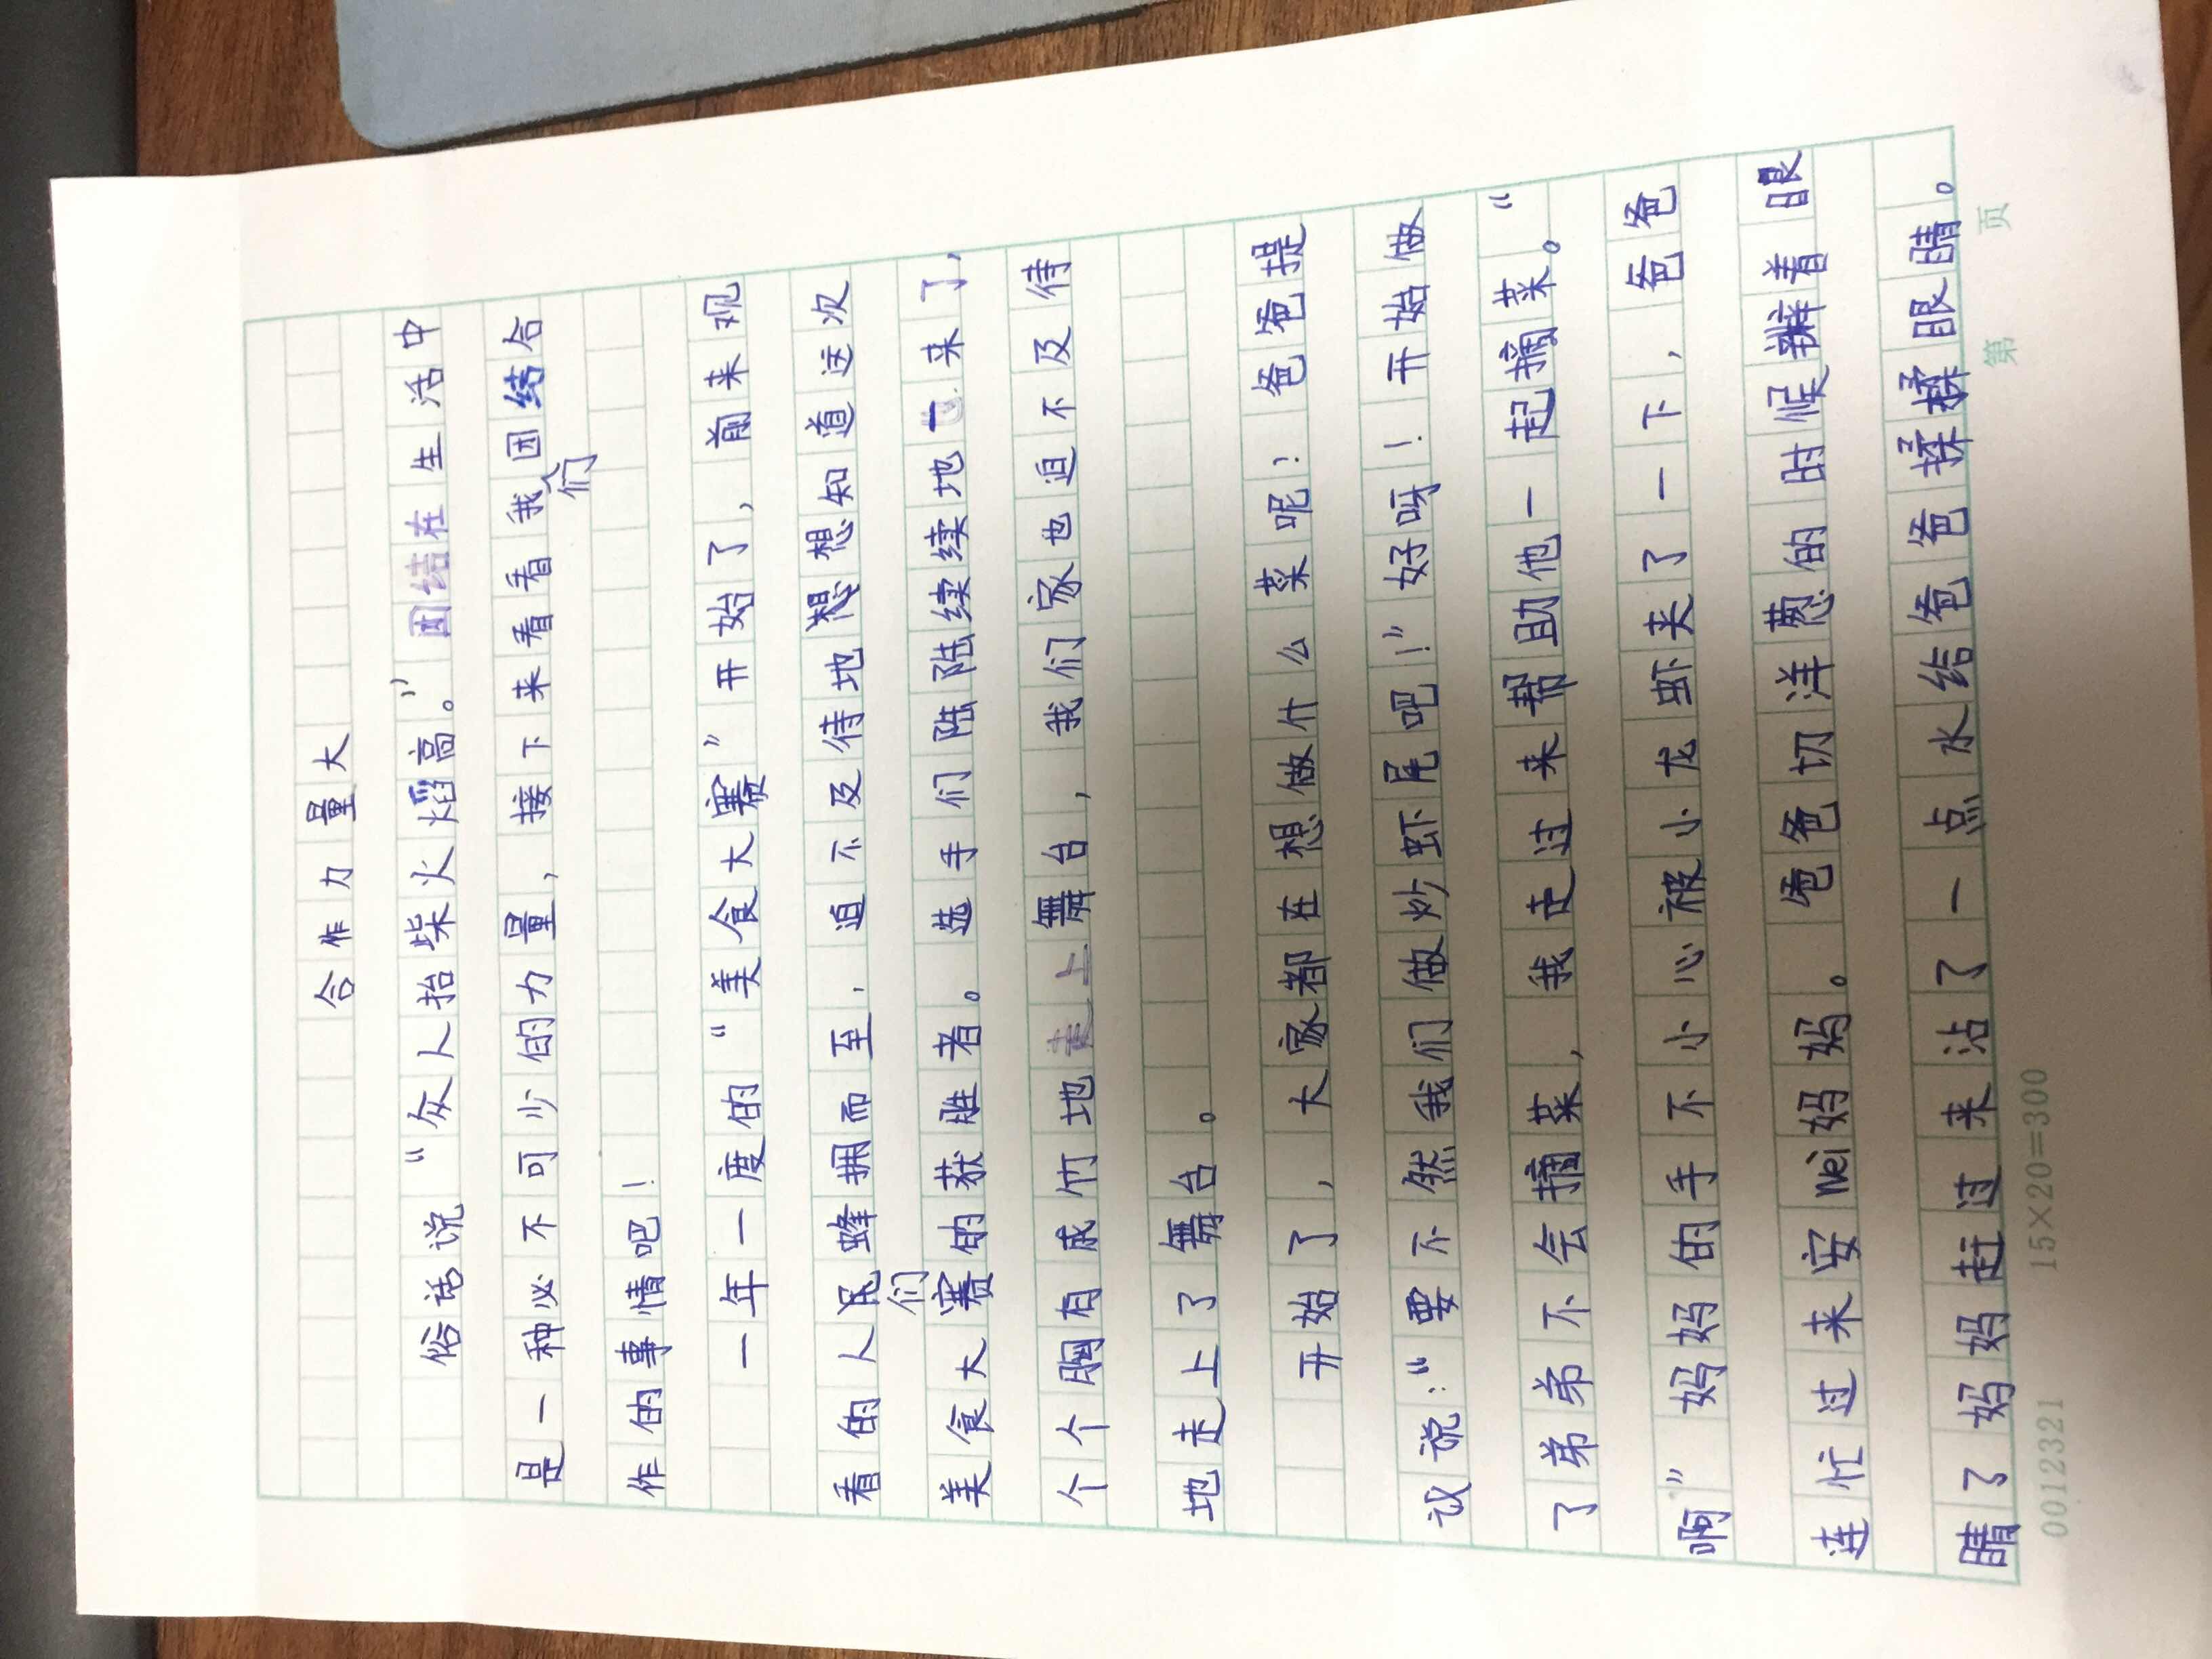 合作力量大
俗话说“众人抬柴火焰高。”团结在生活中
是一种必不可少的力量，接下来看看我们团结合
作的事情吧！
一年一度的“美食大赛”开始了，前来观
看的人民们蜂拥而至，迫不及待地想想知道这次
美食大赛的获胜者。选手们陆陆续续地来了，
个个胸有成竹地走上舞台，我们家也迫不及待
地走上了舞台。
开始了，大家都在想做什么菜呢？爸爸提
议说：“要不然我们做炒虾尾吧！”好呀！开始做
了弟弟不会摘菜，我走过来帮助他一起摘菜。“
啊”妈妈的手不小心被小龙虾夹了一下，爸爸
连忙过来安wei妈妈。爸爸切洋葱的时候辣着眼
睛了妈妈赶过来沾了一点水给爸爸揉揉眼睛。
0012321 15×20=300 第 页